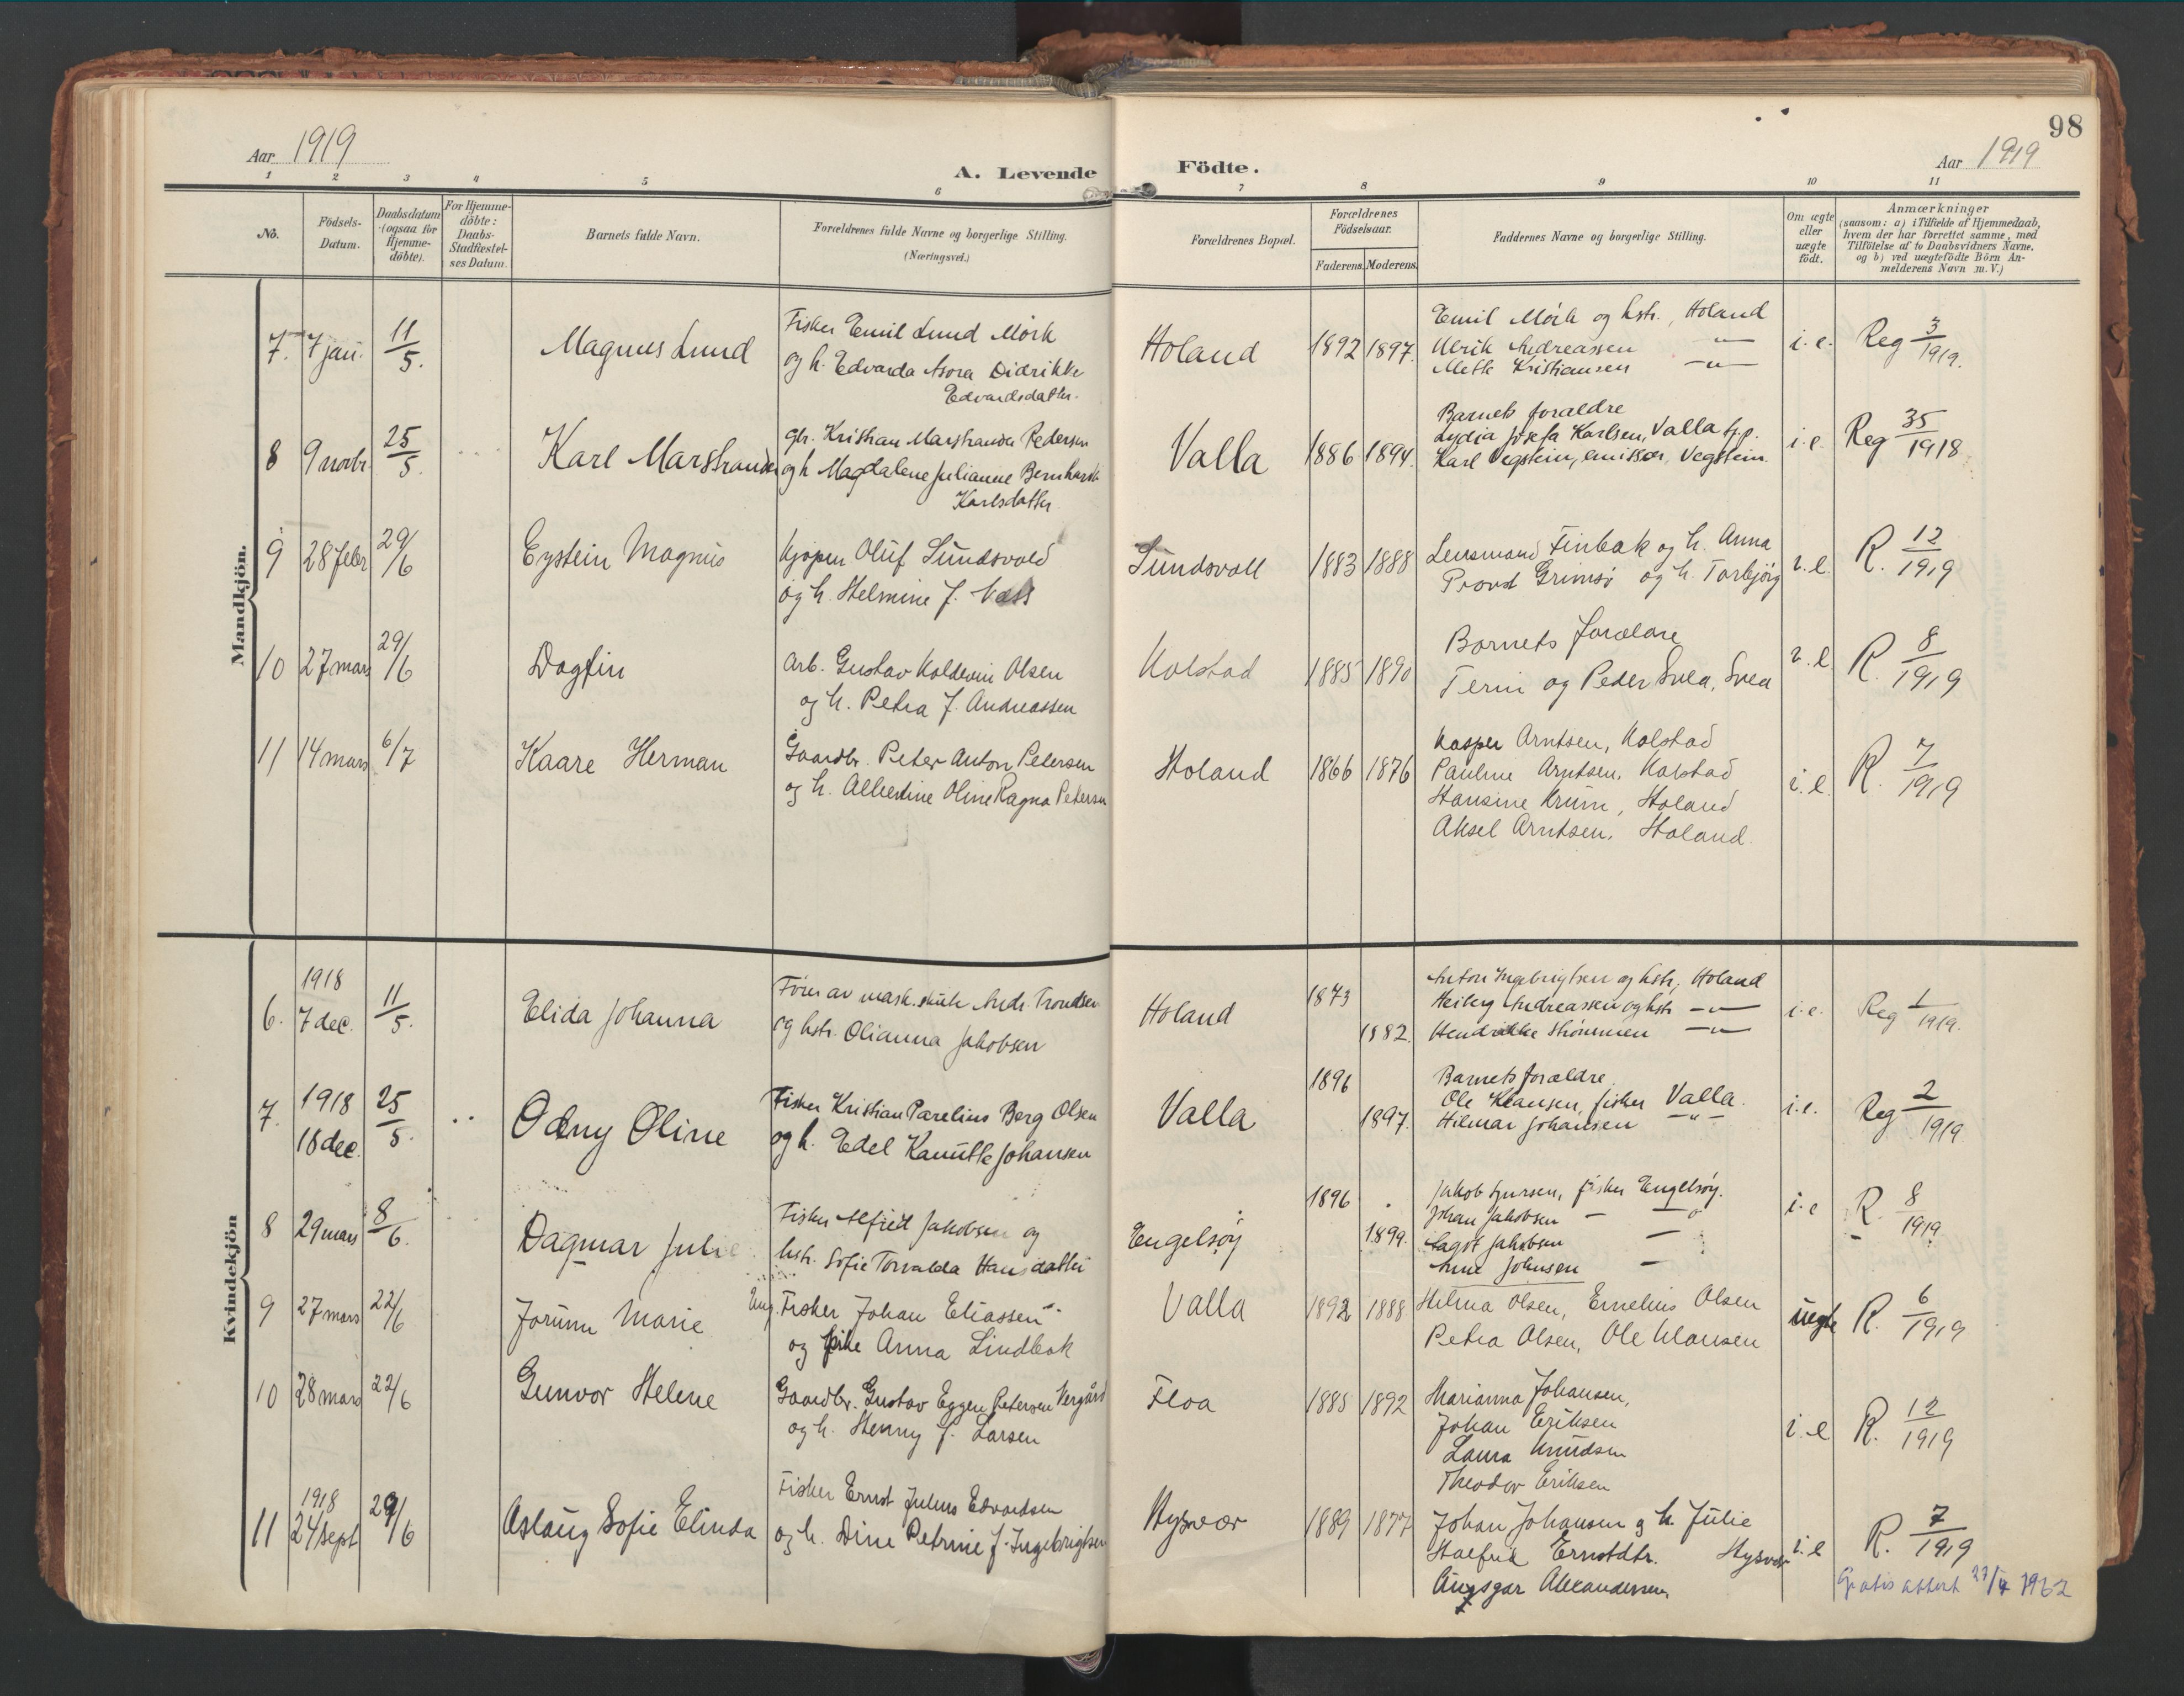 98
Aar 1919
Aar 1919
A. Levende Födte.
1 2 3 4 5 6 7 8 9 10 11
No.
Födsels-
Datum.
Daabsdatum
(ogsaa for
Hjemme-
döbte).
For Hjemme-
döbte:
Daabs-
Stadfæstel-
ses Datum.
Barnets fulde Navn.
Forældrenes fulde Navne og borgerlige Stilling.
(Næringsvei.)
Forældrenes Bopæl.
Forældrenes
Födselsaar.
Faderens. Moderens.
Faddernes Navne og borgerlige Stilling.
Om ægte
eller
uægte
födt.
Anmærkninger
(saasom: a) i Tilfælde af Hjemmedaab,
hvem der har forrettet samme, med
Tilföielse af to Daabsvidners Navne,
og b) ved uægtefödte Börn An-
melderens Navn m. V.)
Mandkjön.
7. 7 jan. 11/5. Magnus Lund
Fisker Emil Lund Mörk
og h. Edvarda Asora Didrikke
Edvardsdatter.
Holand 1892 1897.
Emil Mörk og hstr., Holand
Ulrik Andreassen -"-
Mette Kristiansen -"-
i.e. Reg 3/1919.
8 9 novbr. 25/5. Karl Marstrander
gbr. Kristian Marstrander Pedersen
og h Magdalene Julianne Bernharde
Karlsdatter
Valla 1886 1894.
Barnets foraldre
Lydia Josefa Karlsen, Valla
Karl Vegstein, emissær, Vegstein.
i.e. Reg 35/1918
9 28 febr 29/6 Eystein Magnus
Kjøpm Oluf Sundsvold
og h. Helmine J. Næss
Sundsvoll 1883 1888
Lensmand Finbak og h. Anna
Provst Grimsø og h. Torbjörg
i.e. R. 12/1919
10 27 mars 29/6 Dagfin
Arb. Gustav Koldevin Olsen
og h. Petra J. Andreassen
Kolstad 1885 1890
Barnets forældre
Terin og Peder Svea, Svea
i.e. R. 8/1919
11 14 mars 6/7 Kaare Herman
Gaardbr. Peter Anton Petersen
og h. Albertine Oline Ragna Petersen
Holand 1866 1876
Kasper Arntsen, Kolstad
Pauline Arntsen, Kolstad
Hansine Krum, Holand
Aksel Arntsen, Holand
i.e. R. 7/1919
Kvindekjön
6. 1918
7 dec. 11/5. Elida Johanna
Förer av mask.skute Andr. Trondsen
og hstr. Olianna Jakobsen
Holand 1873 1882.
Anton Ingebrigtsen og hstr, Holand
Andreassen og hstr -"-
-"-
i.e. Reg 1/1919.
7. 1918
18 dec. 25/5. Odny Oline
Fisker Kristian Parelius Berg Olsen
og h. Edel Kanutte Johansen
Valla 1896 1897.
Barnets forældre
Ole Klausen, fisker Valla.
Hilmar Johansen -"-
i.e. Reg 2/1919
8 29 mars 8/6. Dagmar Julie
Fisker Alfred Jakobsen og
hstr. Sofie Torvalda Hansdatter
Engelsöy 1896 1899.
Jakob Sjursen, fisker Engelsöy.
Johan Jakobsen -
Jakobsen -
Anne Johnsen -
i.e R. 8/1919
9 27 mars 22/6 Jorunn Marie
Ung. Fisker Johan Eliassen
og pike Anna Lindbak
Valla 1892 1888
Helma Olsen, Ernelius Olsen
Petra Olsen, Ole Klausen
uegte R. 6/1919
10 28 mars 22/6 Gunvor Helene
Gaardbr. Gustav Eggen Petersen Vergård
og h. Henny J. Larsen
Floa 1885 1892
Marianna Johansen,
Johan Eriksen
Laura Knudsen
Theodor Eriksen
i.e R. 12/1919
11 1918
24 sept 29/6 Aslaug Sofie Elinda
Fisker Ernst Julius Edvardsen
og h. Dine Petrine J. Ingebrigtsen
Hysvær 1889 1877
Johan Johansen og h. Julie
Halfrid Ernstdtr. Hysvær
Ansgar Alexandersen
i.e R. 7/1919
Gratis attest 27/4 1962